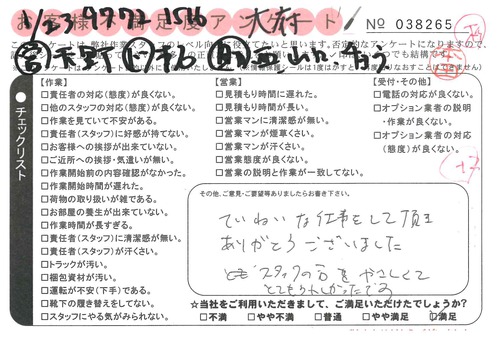 お客様満足度アンケート
1/23 9772 1516 大村
№ 038265
このアンケートは、弊社作業スタッフのレベル向上に役立てたいと思います。否定的なアンケートになりますので、
チェックリスト
【作業】
□責任者の対応(態度)が良くない。
□他のスタッフの対応(態度)が良くない。
□作業を見ていて不安がある。
□責任者(スタッフ)に好感が持てない。
□お客様への挨拶が出来ていない。
□ご近所への挨拶・気遣いが無い。
□作業開始前の内容確認がなかった。
□作業開始時間が遅れた。
□荷物の取り扱いが雑である。
□お部屋の養生が出来ていない。
□作業時間が長すぎる。
□責任者(スタッフ)に清潔感が無い。
□責任者(スタッフ)が汗くさい。
□トラックが汚い。
□梱包資材が汚い。
□運転が不安(下手)である。
□靴下の履き替えをしてない。
□スタッフにやる気がみられない。
【営業】
□見積もり時間に遅れた。
□見積もり時間が長い。
□営業マンに清潔感が無い。
□営業マンが煙草くさい。
□営業マンが汗くさい。
□営業態度が良くない。
□営業の説明と作業が一致してない。
【受付・その他】
□電話の対応が良くない。
□オプション業者の説明
・作業が良くない。
□オプション業者の対応
(態度)が良くない。
その他、ご意見・ご要望等ありましたらお書き下さい。
ていねいな仕事をして頂き
ありがとうございました
ともスタッフの方もやさしくて
とてもうれしかったです
☆当社をご利用いただきまして、ご満足いただけたでしょうか?
□不満 □やや不満 □普通 □やや満足 □満足